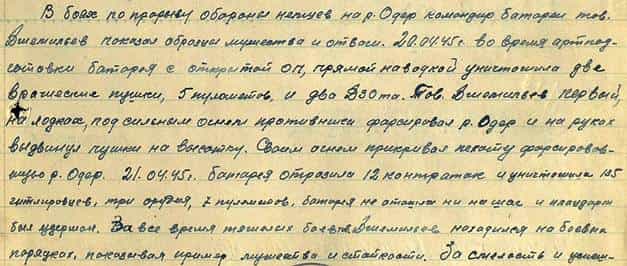 В боях по прорыву обороны немцев на р. Одер командир батареи тов.
Вшемильев показал образцы мужества и отваги. 20.04.45г. во время артпод-
готовки батарея с открытой ОП, прямой наводкой уничтожила две
вражеские пушки, 5 пулометов, и два ВЗО та. Тов. Вшемильев первый,
на лодках, под сильным огнем противника форсировал р. Одер и на руках
выдвинул пушки на высотку. Своим огнем прикривал пехоту форсировав-
шую р. Одер. 21.04.45г. батарея отразила 12 контратак и уничтожила 185
гитлеровцев, три орудия, 7 пулометов, батарея не отошла ни на шаг и плацдарм
был удержан. За все время тяжолых боев тов. Вшемильев находился на боевых
порядках, показывая пример мужества и стойкости. За смелость и